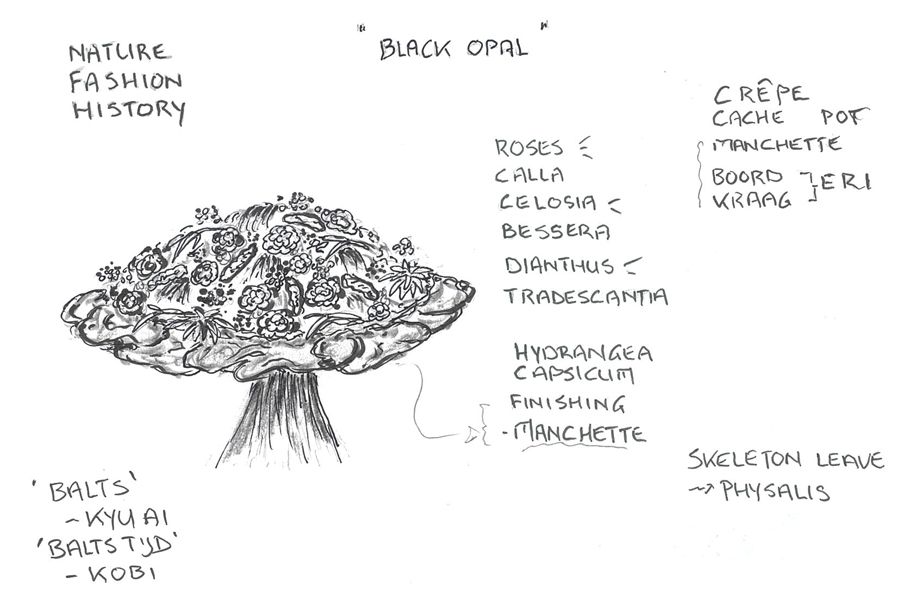 "BLACK OPAL"
NATURE
FASHION
HISTORY
CRÊPE
CACHE POT
MANCHETTE
BOORD
KRAAG
ERI
ROSES
CALLA
CELOSIA
BESSERA
DIANTHUS
TRADESCANTIA
HYDRANGEA
CAPSICUM
FINISHING
- MANCHETTE
SKELETON LEAVE
→ PHYSALIS
'BALTS'
- KYU AI
'BALTSTIJD'
- KOBI